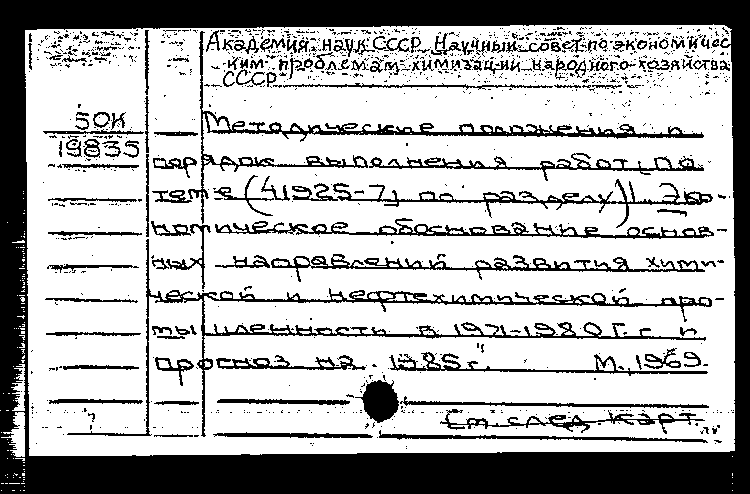 Академия наук СССР. Научный совет по экономичес
ким проблемам химизации народного хозяйства
СССР
50К
19835
Методические положения и
порядок выполнения работ по
теме (41925-7) по разделу) "Эко-
номическое обоснование основ-
ных направлений развития хими-
ческой и нефтехимической про-
мышленности в 1971-1980 г.г и
прогноз на 1985 г." М., 1969.
См. след. карт.